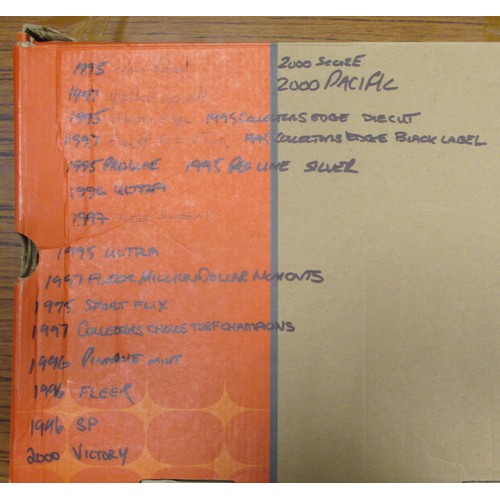 1995
2000 SCORE
1997
2000 PACIFIC
1995 1995 COLLECTERS EDGE DIECUT
1997 1995 COLLECTORS EDGE BLACK LABEL
1995 PROLINE 1995 PRO LINE SILVER
1996 ULTRA
1997
1995 ULTRA
1997 FLEER MILLION DOLLAR MOMONTS
1995 SPORT FLIX
1997 COLLECTORS CHOICE TURF CHAMPIONS
1996 PINNACLE MINT
1996 FLEER
1996 SP
2000 VICTORY